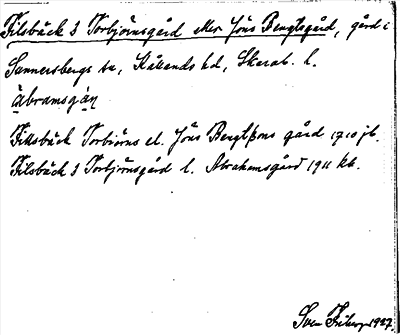 Filsbäck 3 Torbjörnsgård eller Jöns Bengtsgård, gård i
Sunnersbergs sn, Kållands hd, Skarab. l.
äbramsgán
Fillsbäck Torbiörns el. Jöns Bengtßons gård 1710 jb.
Filsbäck 3 Torbjörnsgård l. Abrahamsgård 1911 kb.
Sven Friberg 1927.